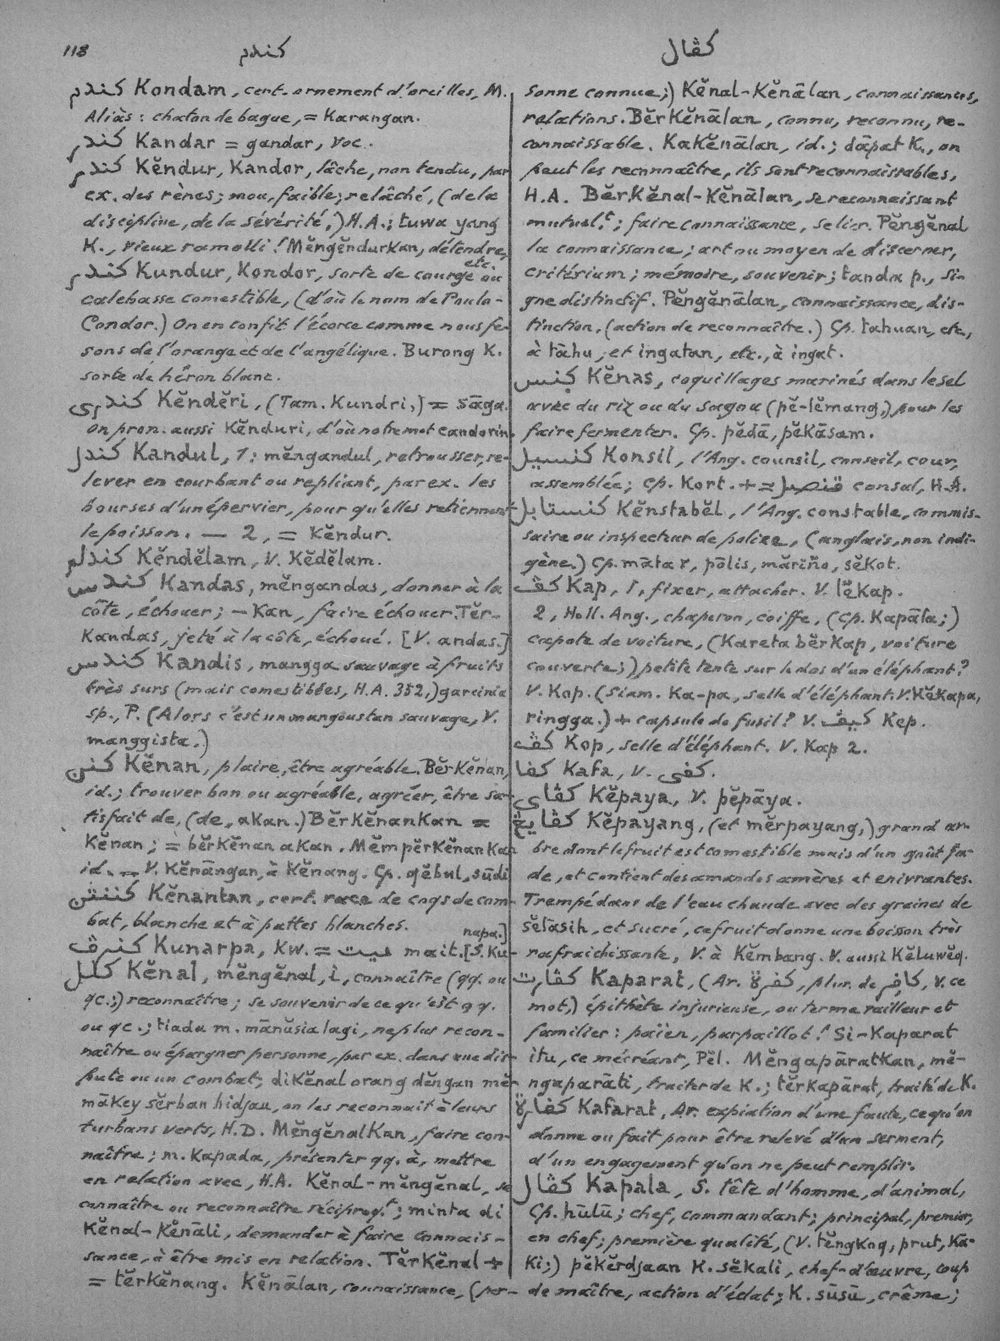 118
كندم
كڤال
كندم Kondam, cert. ornement d'oreilles, M.
Aliàs: chaton de bague, = Karangan.
كندر Kandar = gandar, voc.
كندر Kĕndur, Kandor, lâche, non tendu, par
ex. des rènes; mou, faible; relâché, (de la
discipline, de la sévérité,) H.A.; tuwa yang
K., vieux ramolli! Mĕngĕndurkan, détendre,
etc.
كندر Kundur, Kondor, sorte de courge ou
calebasse comestible, (d'où le nom de Poulo-
Condor.) On en confit l'écorce comme nous fe-
sons de l'orange et de l'angélique. Burong K.
sorte de héron blanc.
كندرى Kĕndĕri, (Tam. Kundri,) = sāga.
On pron. aussi Kĕnduri, d'où notre mot candorin.
كندل Kandul, 1: mĕngandul, retrousser, re-
lever en courbant ou repliant, par ex. les
bourses d'un épervier, pour qu'elles retiennent
le poisson. — 2, = Kĕndur.
كندلم Kĕndĕlam, V. Kĕdĕlam.
كندس Kandas, mĕngandas, donner à la
côte, échouer; — Kan, faire échouer. Tĕr-
Kandas, jeté à la côte, échoué. [V. andas.]
كندس Kandis, mangga sauvage à fruits
très surs (mais comestibles, H.A. 352,) garcinia
sp., P. (Alors c'est un mangoustan sauvage, V.
manggista.)
كنن Kĕnan, plaire, être agréable. BĕrKĕnan,
id.; trouver bon ou agréable, agréer, être sa-
tisfait de, (de, akan.) BĕrKĕnanKan =
Kĕnan; = bĕrKĕnan akan. MĕmpĕrKĕnanKan
id. = V. Kĕnāngan, à Kĕnang. Cp. gĕbul, sūdi
كننتن Kĕnantan, cert. race de coqs de com-
bat, blanche et à pattes blanches.
napa.]
كنرڤ Kunarpa, Kw. = ميت mait. [S. Ku-
كنل Kĕnal, mĕngĕnal, i, connaître (qq. ou
qc.;) reconnaître; se souvenir de ce qu'est qq.
ou qc.; tiada m. mānŭsia lagi, ne plus recon-
naître ou épargner personne, par ex. dans une dis-
pute ou un combat; diKĕnal orang dĕngan mĕ-
māKey sĕrban hidjau, on les reconnait à leurs
turbans verts, H.D. MĕngĕnalKan, faire con-
naître; m. Kapada, présenter qq. à, mettre
en relation avec, H.A. Kĕnal-mĕngĕnal, se
connaître ou reconnaître réciproqt.; minta di
Kĕnal-Kĕnāli, demander à faire connais-
sance, à être mis en relation. TĕrKĕnal +
= tĕrKĕnang. Kĕnālan, connaissance, (per-
sonne connue;) Kĕnal-Kĕnālan, connaissances,
relations. BĕrKĕnālan, connu, reconnu, re-
connaissable. KaKĕnālan, id.; dāpat K., on
peut les reconnaître, ils sont reconnaissables,
H.A. BĕrKĕnal-Kĕnālan, se reconnaissant
mutuelt.; faire connaissance, se lier. Pĕngĕnal
la connaissance; art ou moyen de discerner,
critérium; mémoire, souvenir; tanda p., si-
gne distinctif. Pĕngĕnālan, connaissance, dis-
tinction, (action de reconnaître.) Cp. tahuan, etc,
à tāhu, et ingatan, etc., à ingat.
كنس Kĕnas, coquillages marinés dans le sel
avec du riz ou du sagou (pĕ-lĕmang,) pour les
faire fermenter. Cp. pĕdā, pĕkāsam.
كنسيل Konsil, l'Ang. counsil, conseil, cour,
assemblée; cp. Kort. + = قنصل consul, H.A.
كنستابل Kĕnstabĕl, l'Ang. constable, commis-
saire ou inspecteur de police, (anglais, non indi-
gène.) Cp. māta², pōlis, māriño, sĕkot.
كڤ Kap, 1, fixer, attacher. V. lĕkap.
2, Holl. Ang., chaperon, coiffe, (cp. Kapāla;)
capote de voiture, (Kareta bĕrKap, voiture
couverte;) petite tente sur le dos d'un éléphant?
V. Kop. (Siam. Ka-pa, selle d'éléphant. V. Kĕkapa,
ringga.) + capsule de fusil? V. كيڤ Kep.
كڤ Kop, selle d'éléphant. V. Kap 2.
كفا Kafa, V. كفى.
كڤاى Kĕpaya, V. pĕpāya.
كڤايڠ Kĕpayang, (et mĕrpayang,) grand ar-
bre dont le fruit est comestible mais d'un goût fa-
de, et contient des amandes amères et enivrantes.
Trempé dans de l'eau chaude avec des graines de
sĕlāsih, et sucré, ce fruit donne une boisson très
rafraichissante, V. à Kĕmbang. V. aussi Kĕluwĕq.
كڤارت Kaparat, (Ar. كفرة, plur. de كافر, V. ce
mot,) épithète injurieuse, ou terme railleur et
familier: païen, parpaillot! Si-Kaparat
itu, ce mécréant, Pĕl. MĕngapāratKan, mĕ-
ngaparāti, traiter de K.; tĕrkapārat, traité de K.
كفارة Kafarat, Ar. expiation d'une faute, ce qu'on
donne ou fait pour être relevé d'un serment,
d'un engagement qu'on ne peut remplir.
كڤال Kapala, S. tête d'homme, d'animal,
Cp. hūlū; chef, commandant; principal, premier,
en chef; première qualité, (V. tĕngkoq, prut, Kā-
Ki;) pĕkĕrdjaan K. sĕkali, chef-d'œuvre, coup
de maître, action d'éclat; K. sūsū, crême;